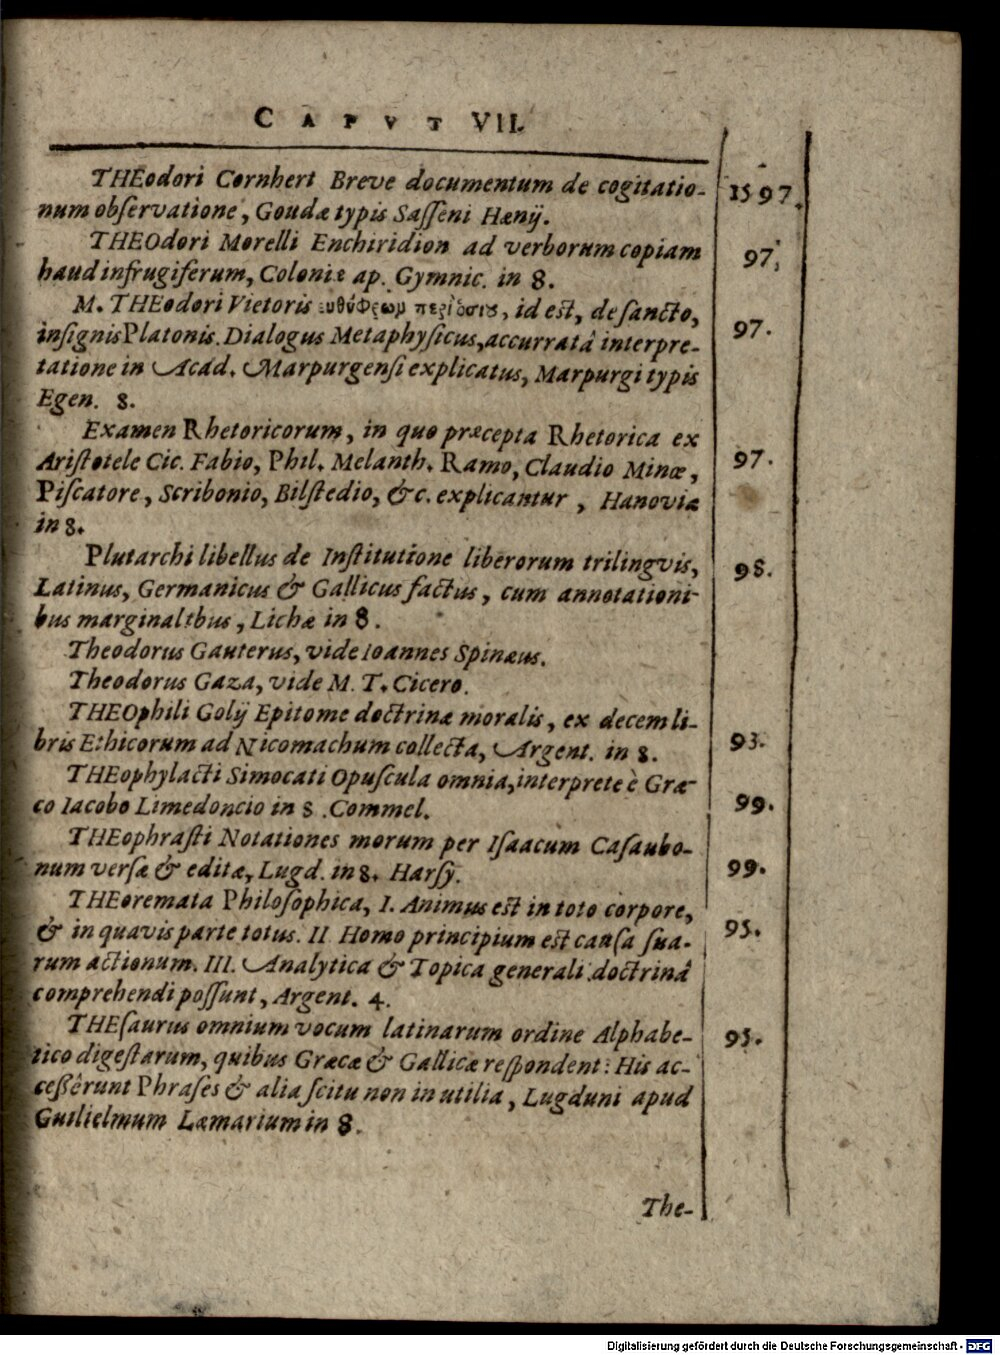 CAPVT VII.
THEodori Cornhert Breve documentum de cogitatio- 1597.
num observatione, Goudæ typis Sasseni Hænij.
THEOdori Morelli Enchiridion ad verborum copiam 97.
haud infrugiferum, Coloniæ ap. Gymnic. in 8.
M. THEodori Vietoris id est, de sancto,
insignis Platonis. Dialogus Metaphysicus, accurratâ interpre- 97.
tatione in Acad. Marpurgensi explicatus, Marpurgi typis
Egen. 8.
Examen Rhetoricorum, in quo præcepta Rhetorica ex
Aristotele Cic. Fabio, Phil. Melanth. Ramo, Claudio Minœ, 97.
Piscatore, Scribonio, Bilstedio, &c. explicantur, Hanoviæ
in 8.
Plutarchi libellus de Institutione liberorum trilingvis, 98.
Latinus, Germanicus & Gallicus factus, cum annotationi-
bus marginalibus, Lichæ in 8.
Theodorus Gauterus, vide Ioannes Spinæus.
Theodorus Gaza, vide M. T. Cicero.
THEOphili Golij Epitome doctrinæ moralis, ex decem li-
bris Ethicorum ad Nicomachum collecta, Argent. in 8. 93.
THEophylacti Simocati Opuscula omnia, interprete è Græ-
co Iacobo Limedoncio in 8. Commel. 99.
THEophrasti Notationes morum per Isaacum Casaubo-
num versæ & editæ, Lugd. in 8. Harsy. 99.
THEoremata Philosophica, I. Animus est in toto corpore,
& in quavis parte totus. II Homo principium est causa sua- 95.
rum actionum. III. Analytica & Topica generali doctrinâ
comprehendi possunt, Argent. 4.
THEsaurus omnium vocum latinarum ordine Alphabe- 95.
tico digestarum, quibus Græcæ & Gallicæ respondent: His ac-
cessêrunt Phrases & alia scitu non inutilia, Lugduni apud
Guilielmum Læmarium in 8.
The-
Digitalisierung gefördert durch die Deutsche Forschungsgemeinschaft - DFG